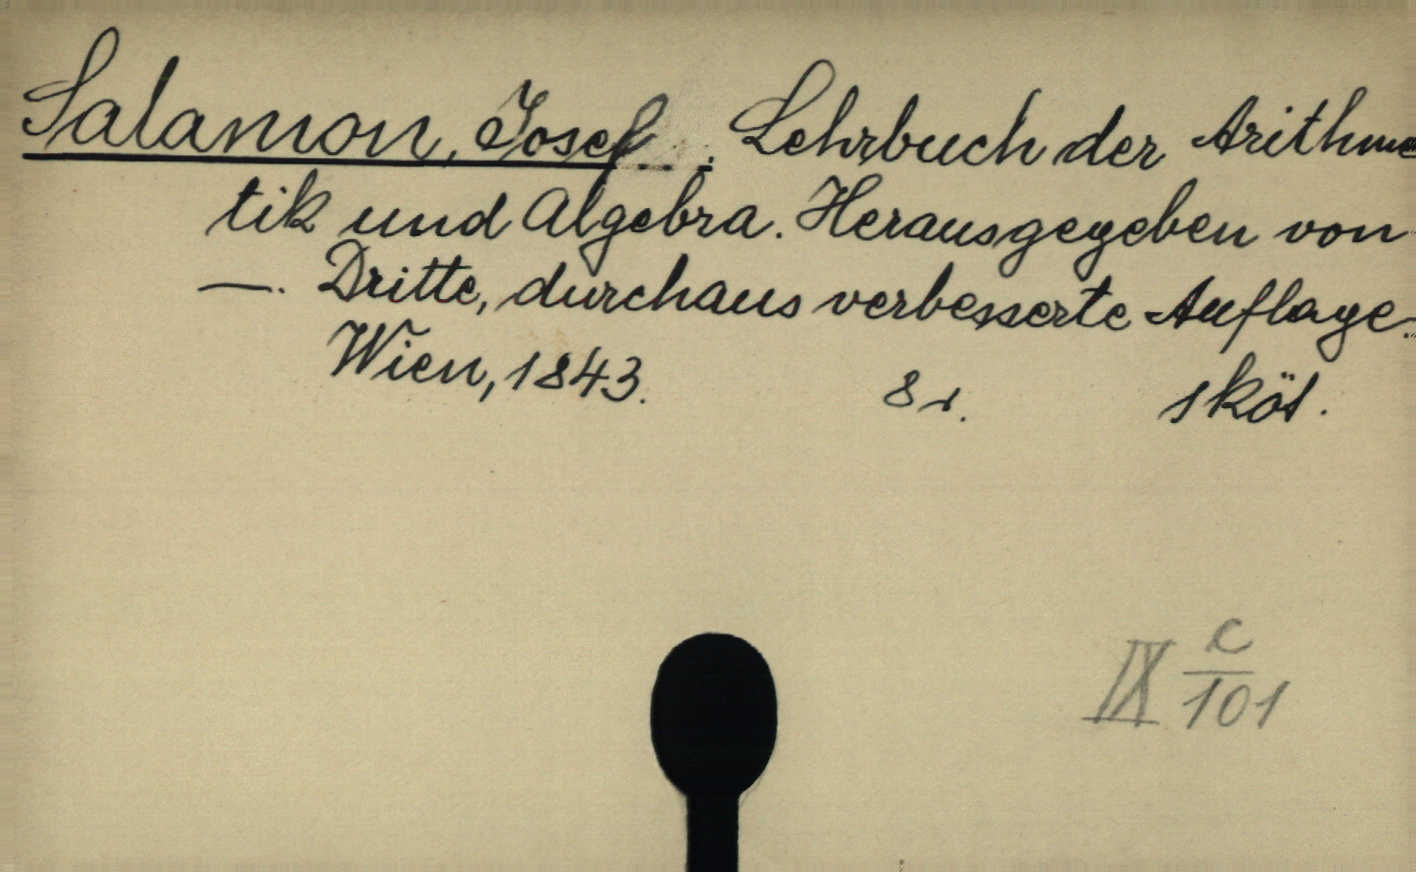 Salamon, Josef. Lehrbuch der Arithme
tik und Algebra. Herausgegeben von
—. Dritte, durchaus verbesserte Auflage.
Wien, 1843. 8r. 1 köt.
IX c/101